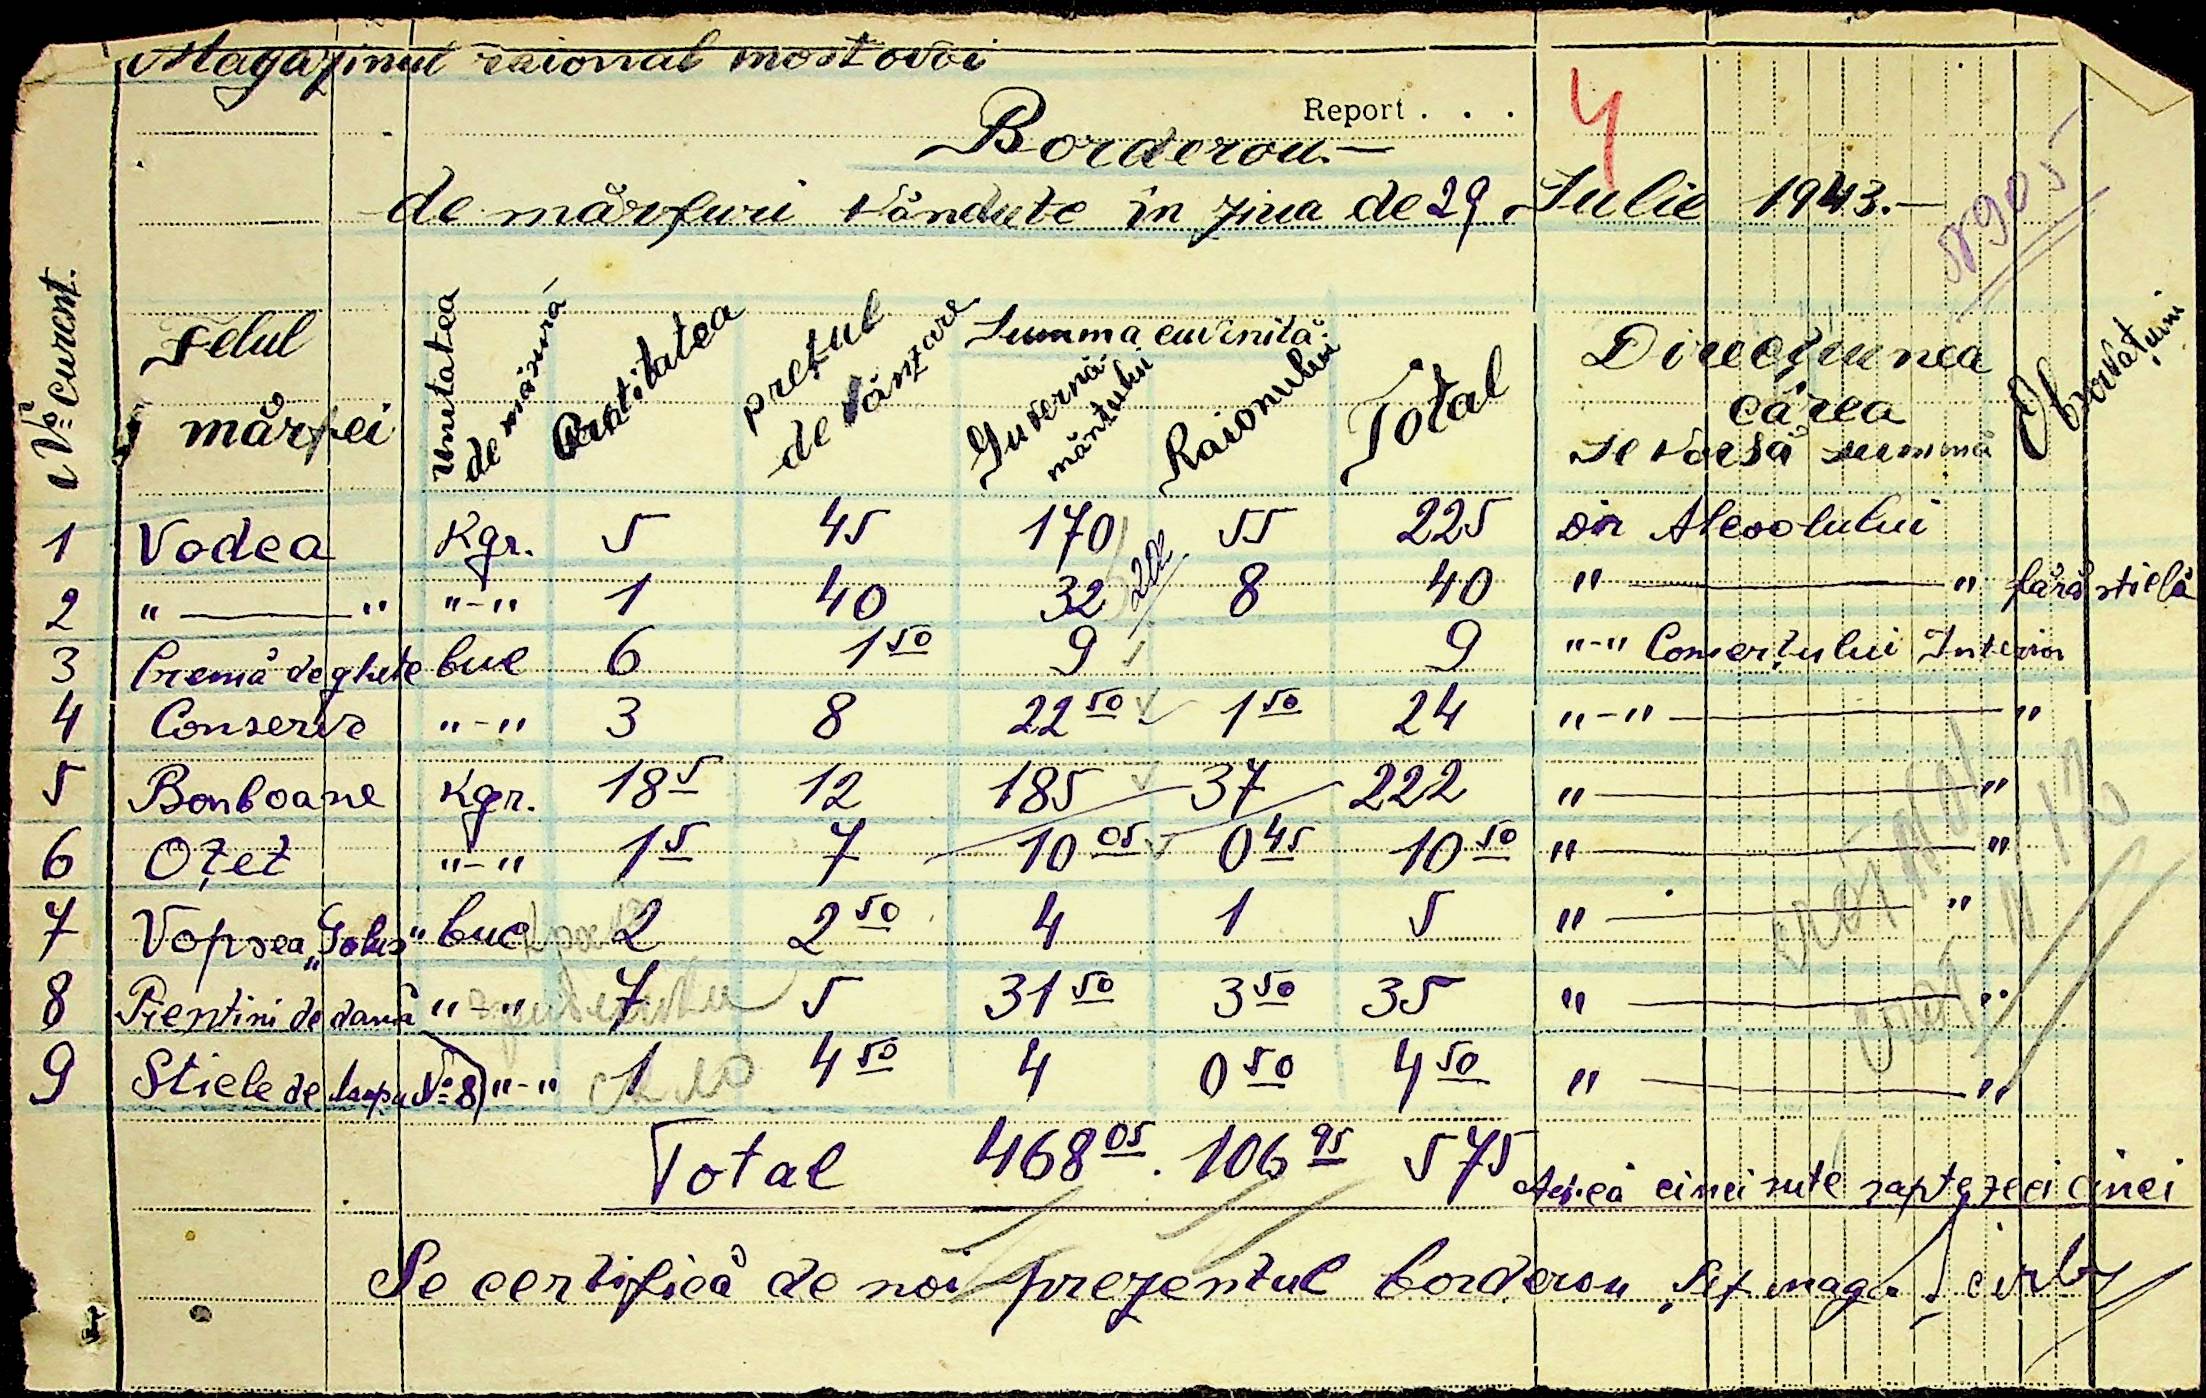 Magazinul raional mostovoi
Report . . . 4
Borderou.—
de mărfuri vândute în ziua de 29 Iulie 1943.—
No curent. Felul mărfei Unitatea de măsură Cantitatea prețul de vânzare Summa cuvinită: Guvernământului Raionului Total Direcțiunea cărea se varsă summa Observațiuni
1 Vodca Kgr. 5 45 170 55 225 din Alcoolului
202
2 " — " "-" 1 40 32 8 40 " — " fără sticlă
3 Cremă de ghete buc 6 1 50 9 9 "-" Comerțului Interior
4 Conserve "-" 3 8 22 50 1 50 24 "-" — "
5 Bonboane Kgr. 18 5 12 185 37 222 " — "
6 Oțet "-" 1 5 7 10 05 0 45 10 50 " — "
7 Vopsea „Golus" buc 2 2 50 4 1 5 " — "
8 Pieptini de damă "-" 7 5 31 50 3 50 35 " — "
9 Sticle de lampa No 8) "-" 1 4 50 4 0 50 4 50 " — "
Total 468 05. 106 95 575 Adică cinci sute șaptezeci cinci
Se certifică de noi prezentul borderou Șef maga